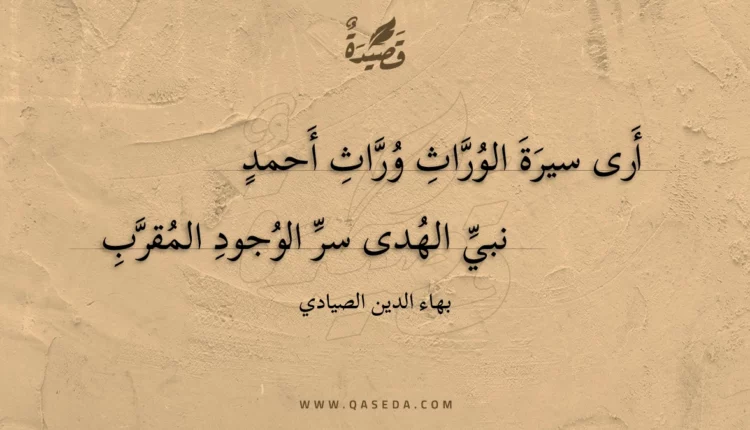 قَصِيدَةٌ
أَرى سيرَةَ الوُرَّاثِ وُرَّاثِ أَحمدٍ
نبيِّ الهُدى سرِّ الوُجودِ المُقرَّبِ
بهاء الدين الصيادي
WWW.QASEDA.COM